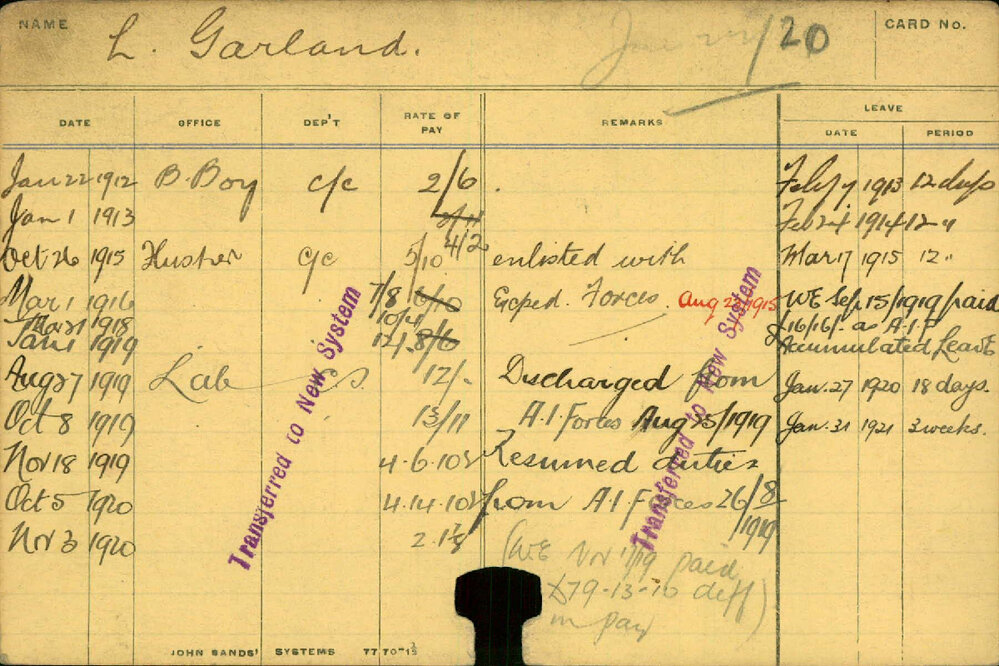 NAME L. Garland. Jan /20 CARD No.
DATE OFFICE DEP'T RATE OF PAY REMARKS LEAVE
DATE PERIOD
Jan 22 1912 B. Boy c/c 2/6 . Feby 7 1913 12 days
Jan 1 1913 Feb 24 1914 12 "
4/2
Oct 26 1915 c/c 5/10 enlisted with Mar 17 1915 12 "
Mar 1 1916 7/8 Exped. Forces. Aug 1915 WE Sep 15/1919/paid
1918 10/4 £16/16/- as A.I.F
Jan 1 1919 8/6 Acumulated Leave
Aug 27 1919 Lab 12/- Discharged from Jan. 27 1920 18 days.
Oct 8 1919 13/11 A.I. Forces Aug 25/1919 Jan. 31 1921 3 weeks.
Nov 18 1919 4.6.10 Resumed duties
Oct 5 1920 4.14.10 from A.I. Forces 26/8/1919
Nov 3 1920 2.1
(WE Nov 1/19 paid
£79-13-10 diff)
in pay
Transferred to New System
Transferred to New System
JOHN SANDS' SYSTEMS